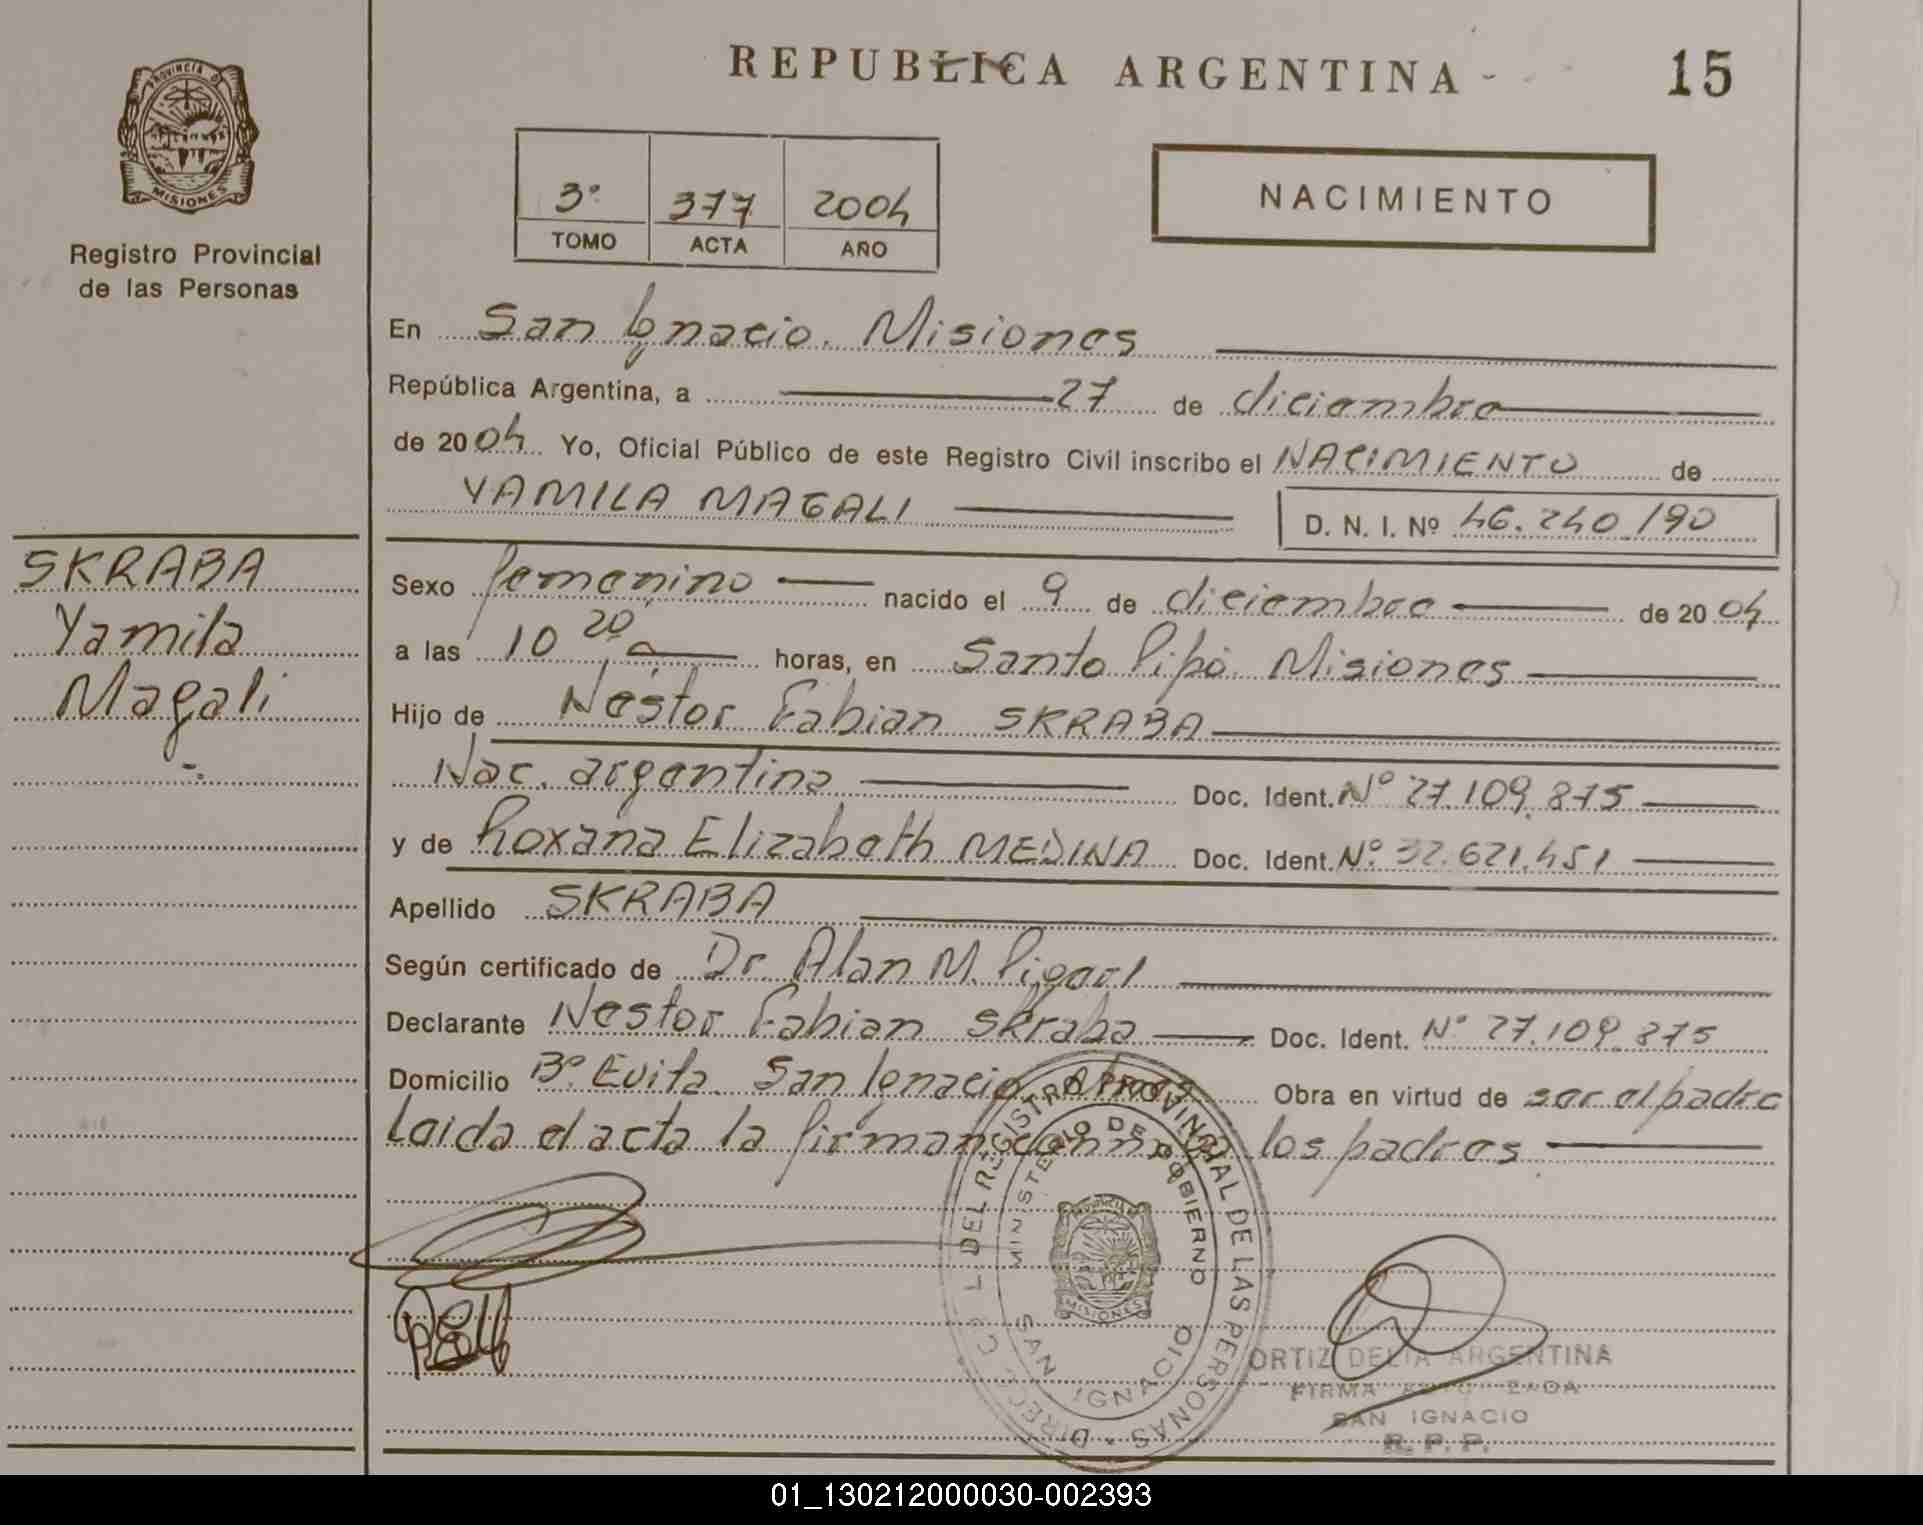 REPUBLICA ARGENTINA
15
PROVINCIA D
MISIONES
Registro Provincial
de las Personas
3º 377 2004
TOMO ACTA AÑO
NACIMIENTO
En San Ignacio. Misiones
República Argentina, a 27 de diciembre
de 2004 Yo, Oficial Público de este Registro Civil inscribo el NACIMIENTO de
YAMILA MAGALI D. N. I. Nº 46.240.190
SKRABA
Yamila
Magali
Sexo femenino nacido el 9 de diciembre de 2004
a las 10 20 horas, en Santo Pipó. Misiones
Hijo de Nestor Fabian SKRABA
Nac. argentina Doc. Ident. Nº 27.109.875
y de Roxana Elizabeth MEDINA Doc. Ident. Nº 32.621.451
Apellido SKRABA
Según certificado de Dr. Alan M.
Declarante Nestor Fabian Skraba Doc. Ident. Nº 27.109.875
Domicilio Bº. Evita. San Ignacio, Mnes Obra en virtud de ser el padre
Leida el acta la firman los padres
DEL REGISTRO PROVINCIAL DE LAS PERSONAS
MINISTERIO DE GOBIERNO
MISIONES
SAN IGNACIO
ORTIZ DELIA ARGENTINA
FIRMA
SAN IGNACIO
R. P. P.
01_130212000030-002393